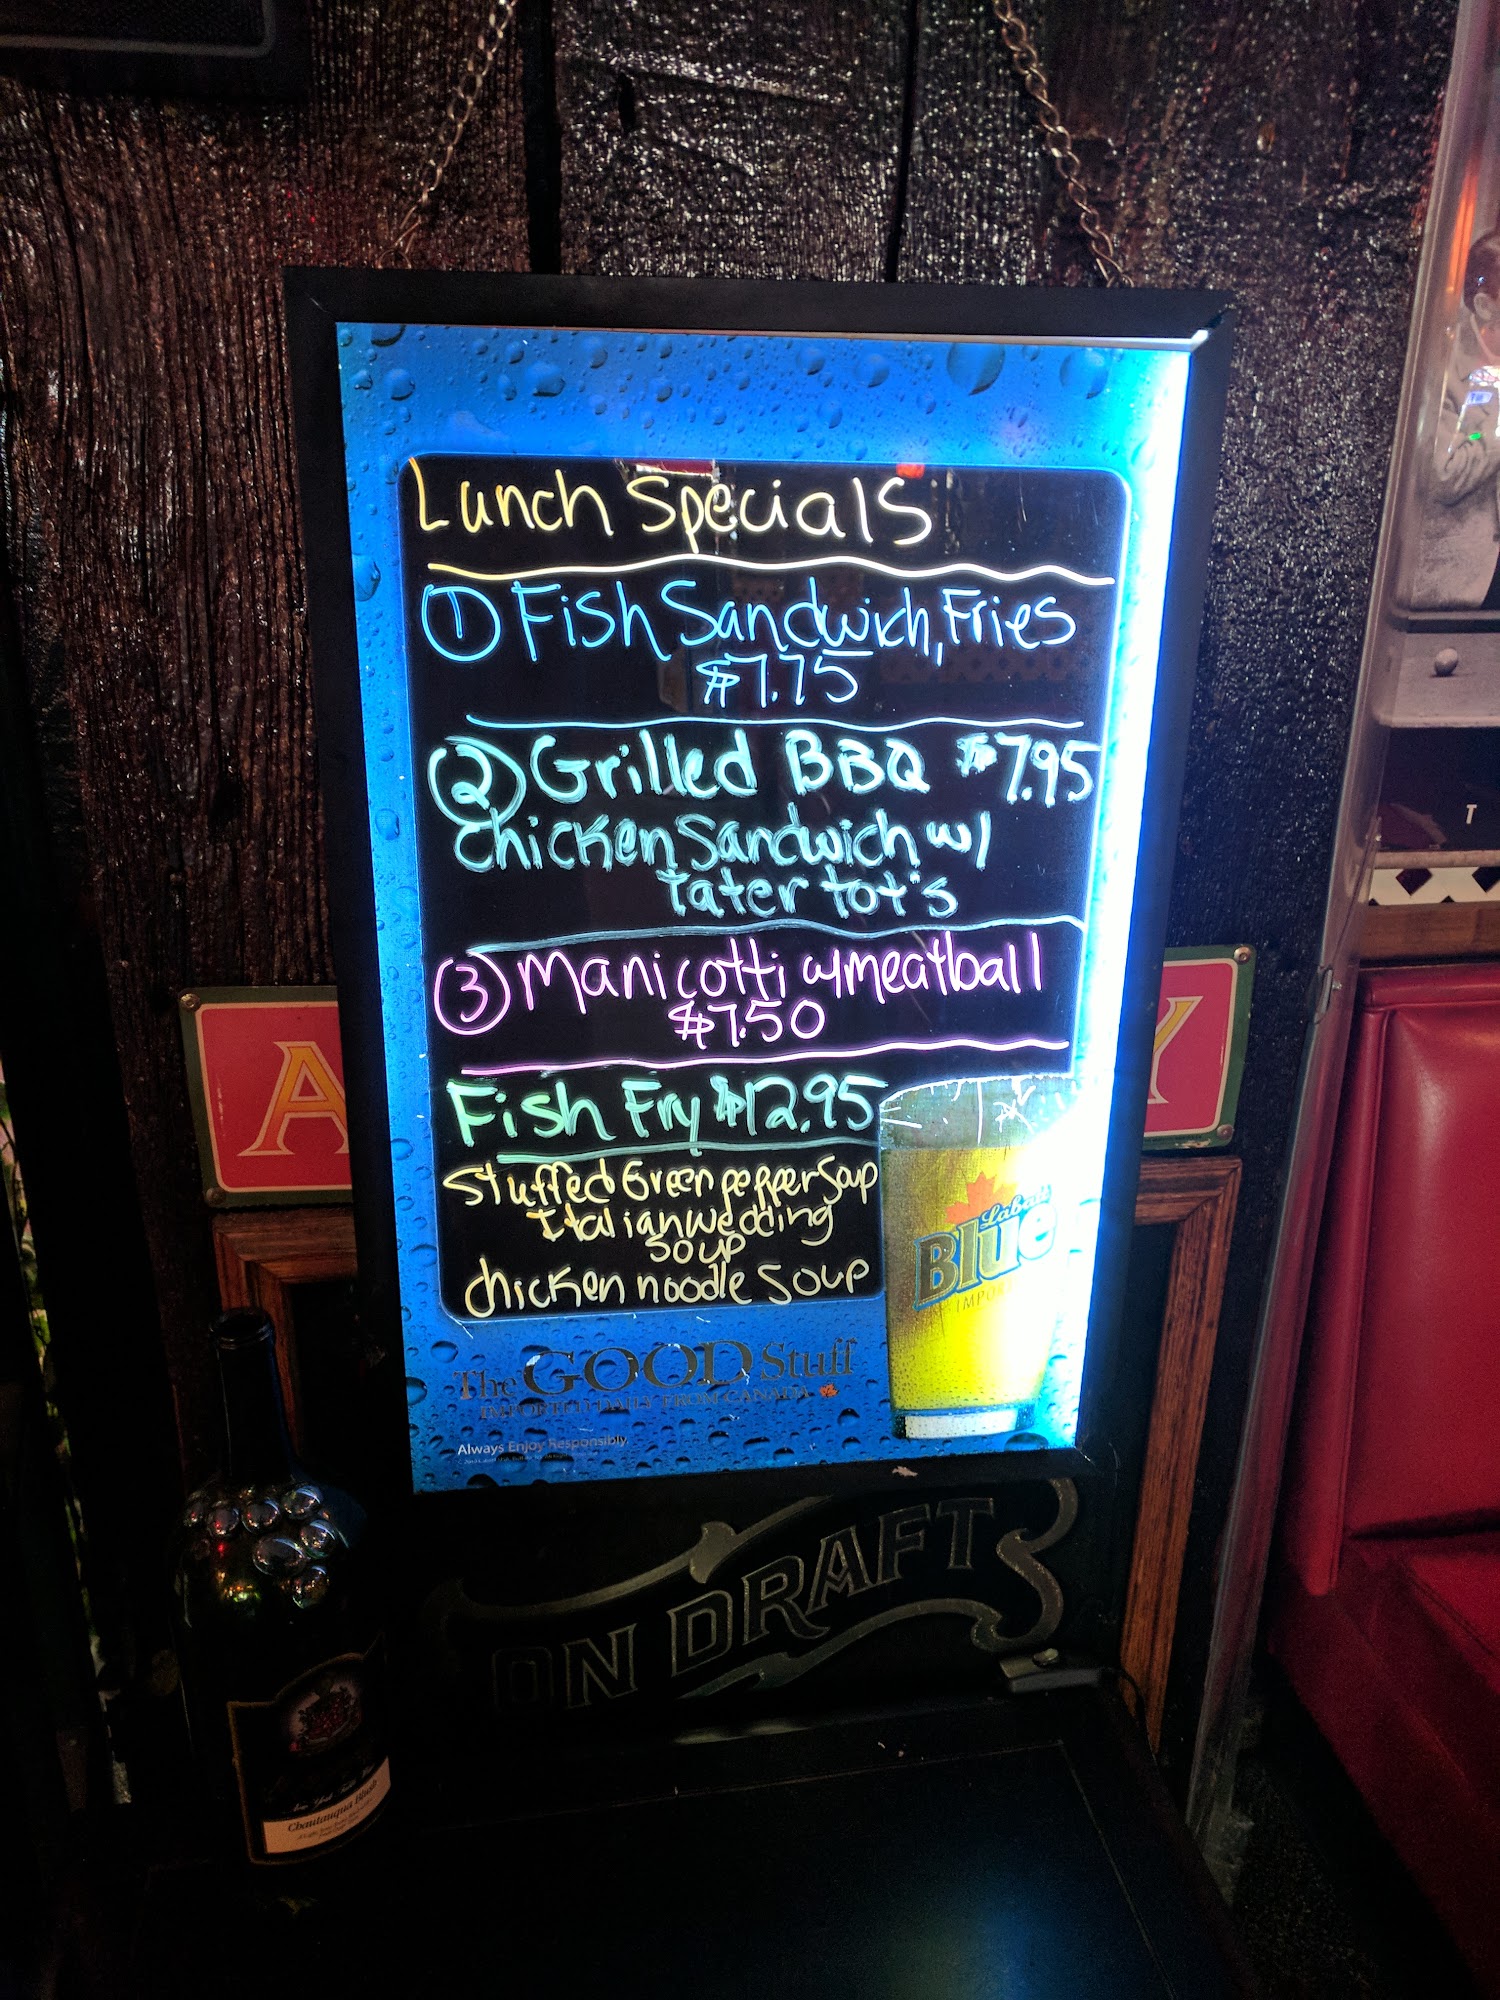 Lunch Specials
① Fish Sandwich, Fries
$7.75
② Grilled BBQ $7.95
chicken Sandwich w/
tater tot's
③ Manicotti w/meatball
$7.50
Fish Fry $12.95
Stuffed Green pepper Soup
Italian wedding
soup
chicken noodle Soup
Labatt
Blue
The GOOD Stuff
IMPORTED DAILY FROM CANADA
Always Enjoy Responsibly.
A
Y
T
ON DRAFT
Chautauqua Blush